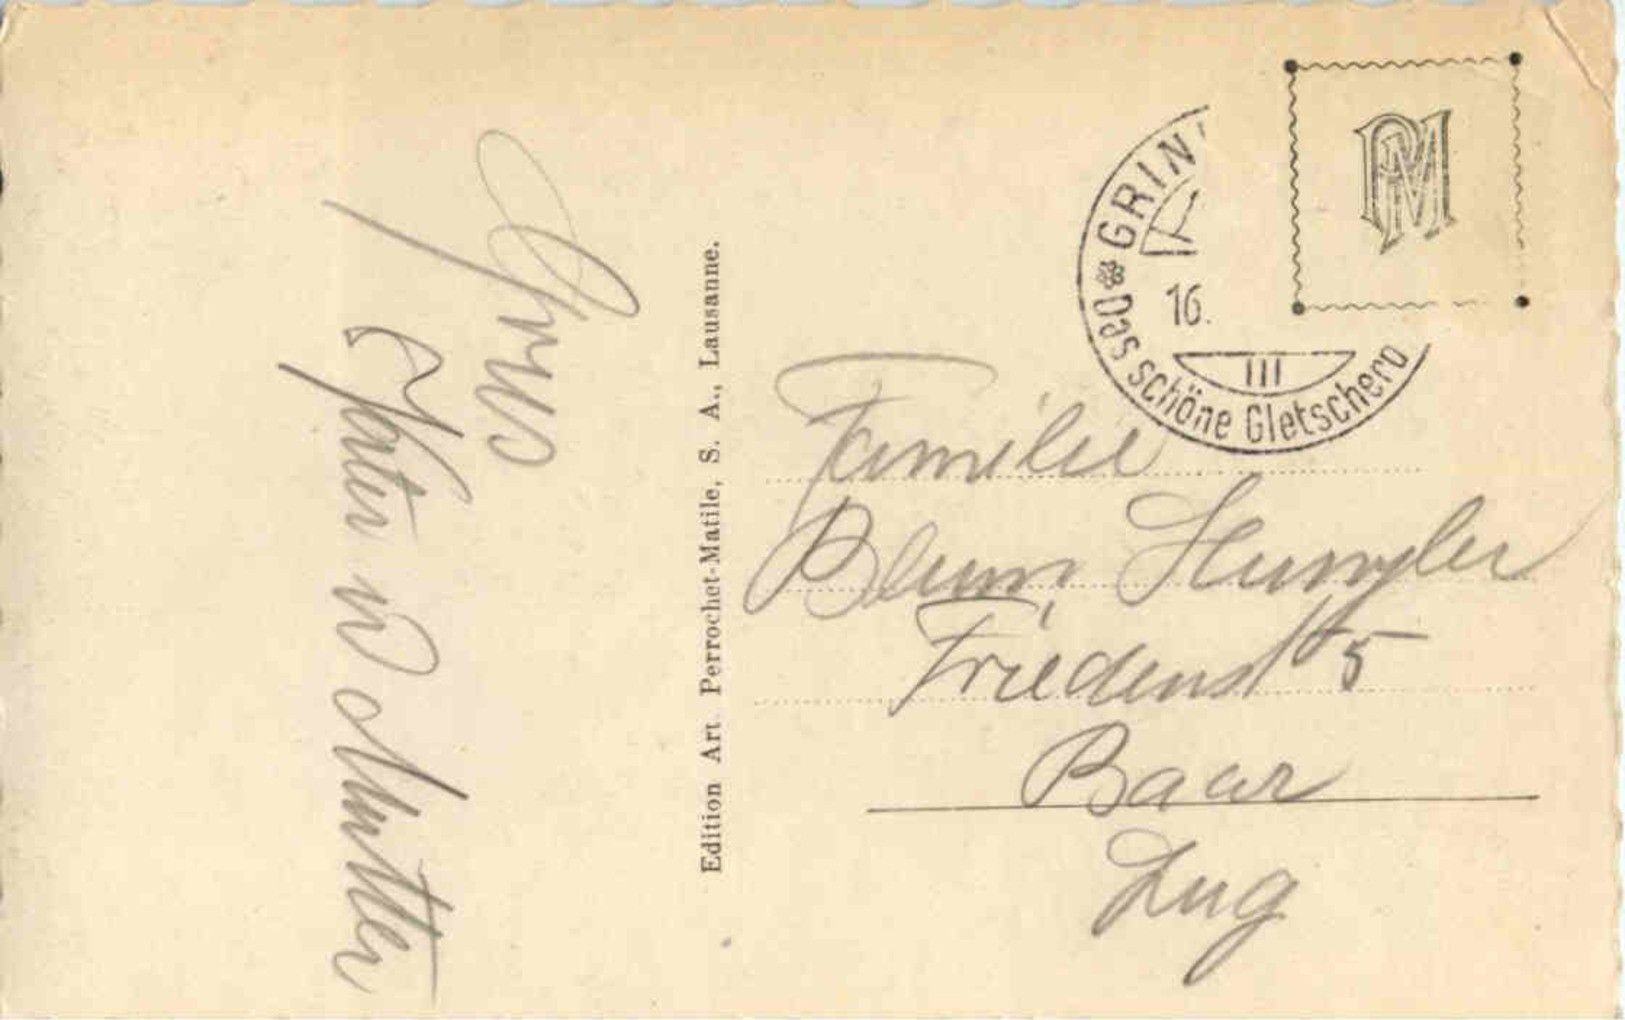 Gruss
Vater u Mutter
Edition Art. Perrochet-Matile, S. A., Lausanne.
PM
GRIN
16.
III
Das schöne Gletscherd
Familie
Blum
Friedenst 5
Baar
Zug